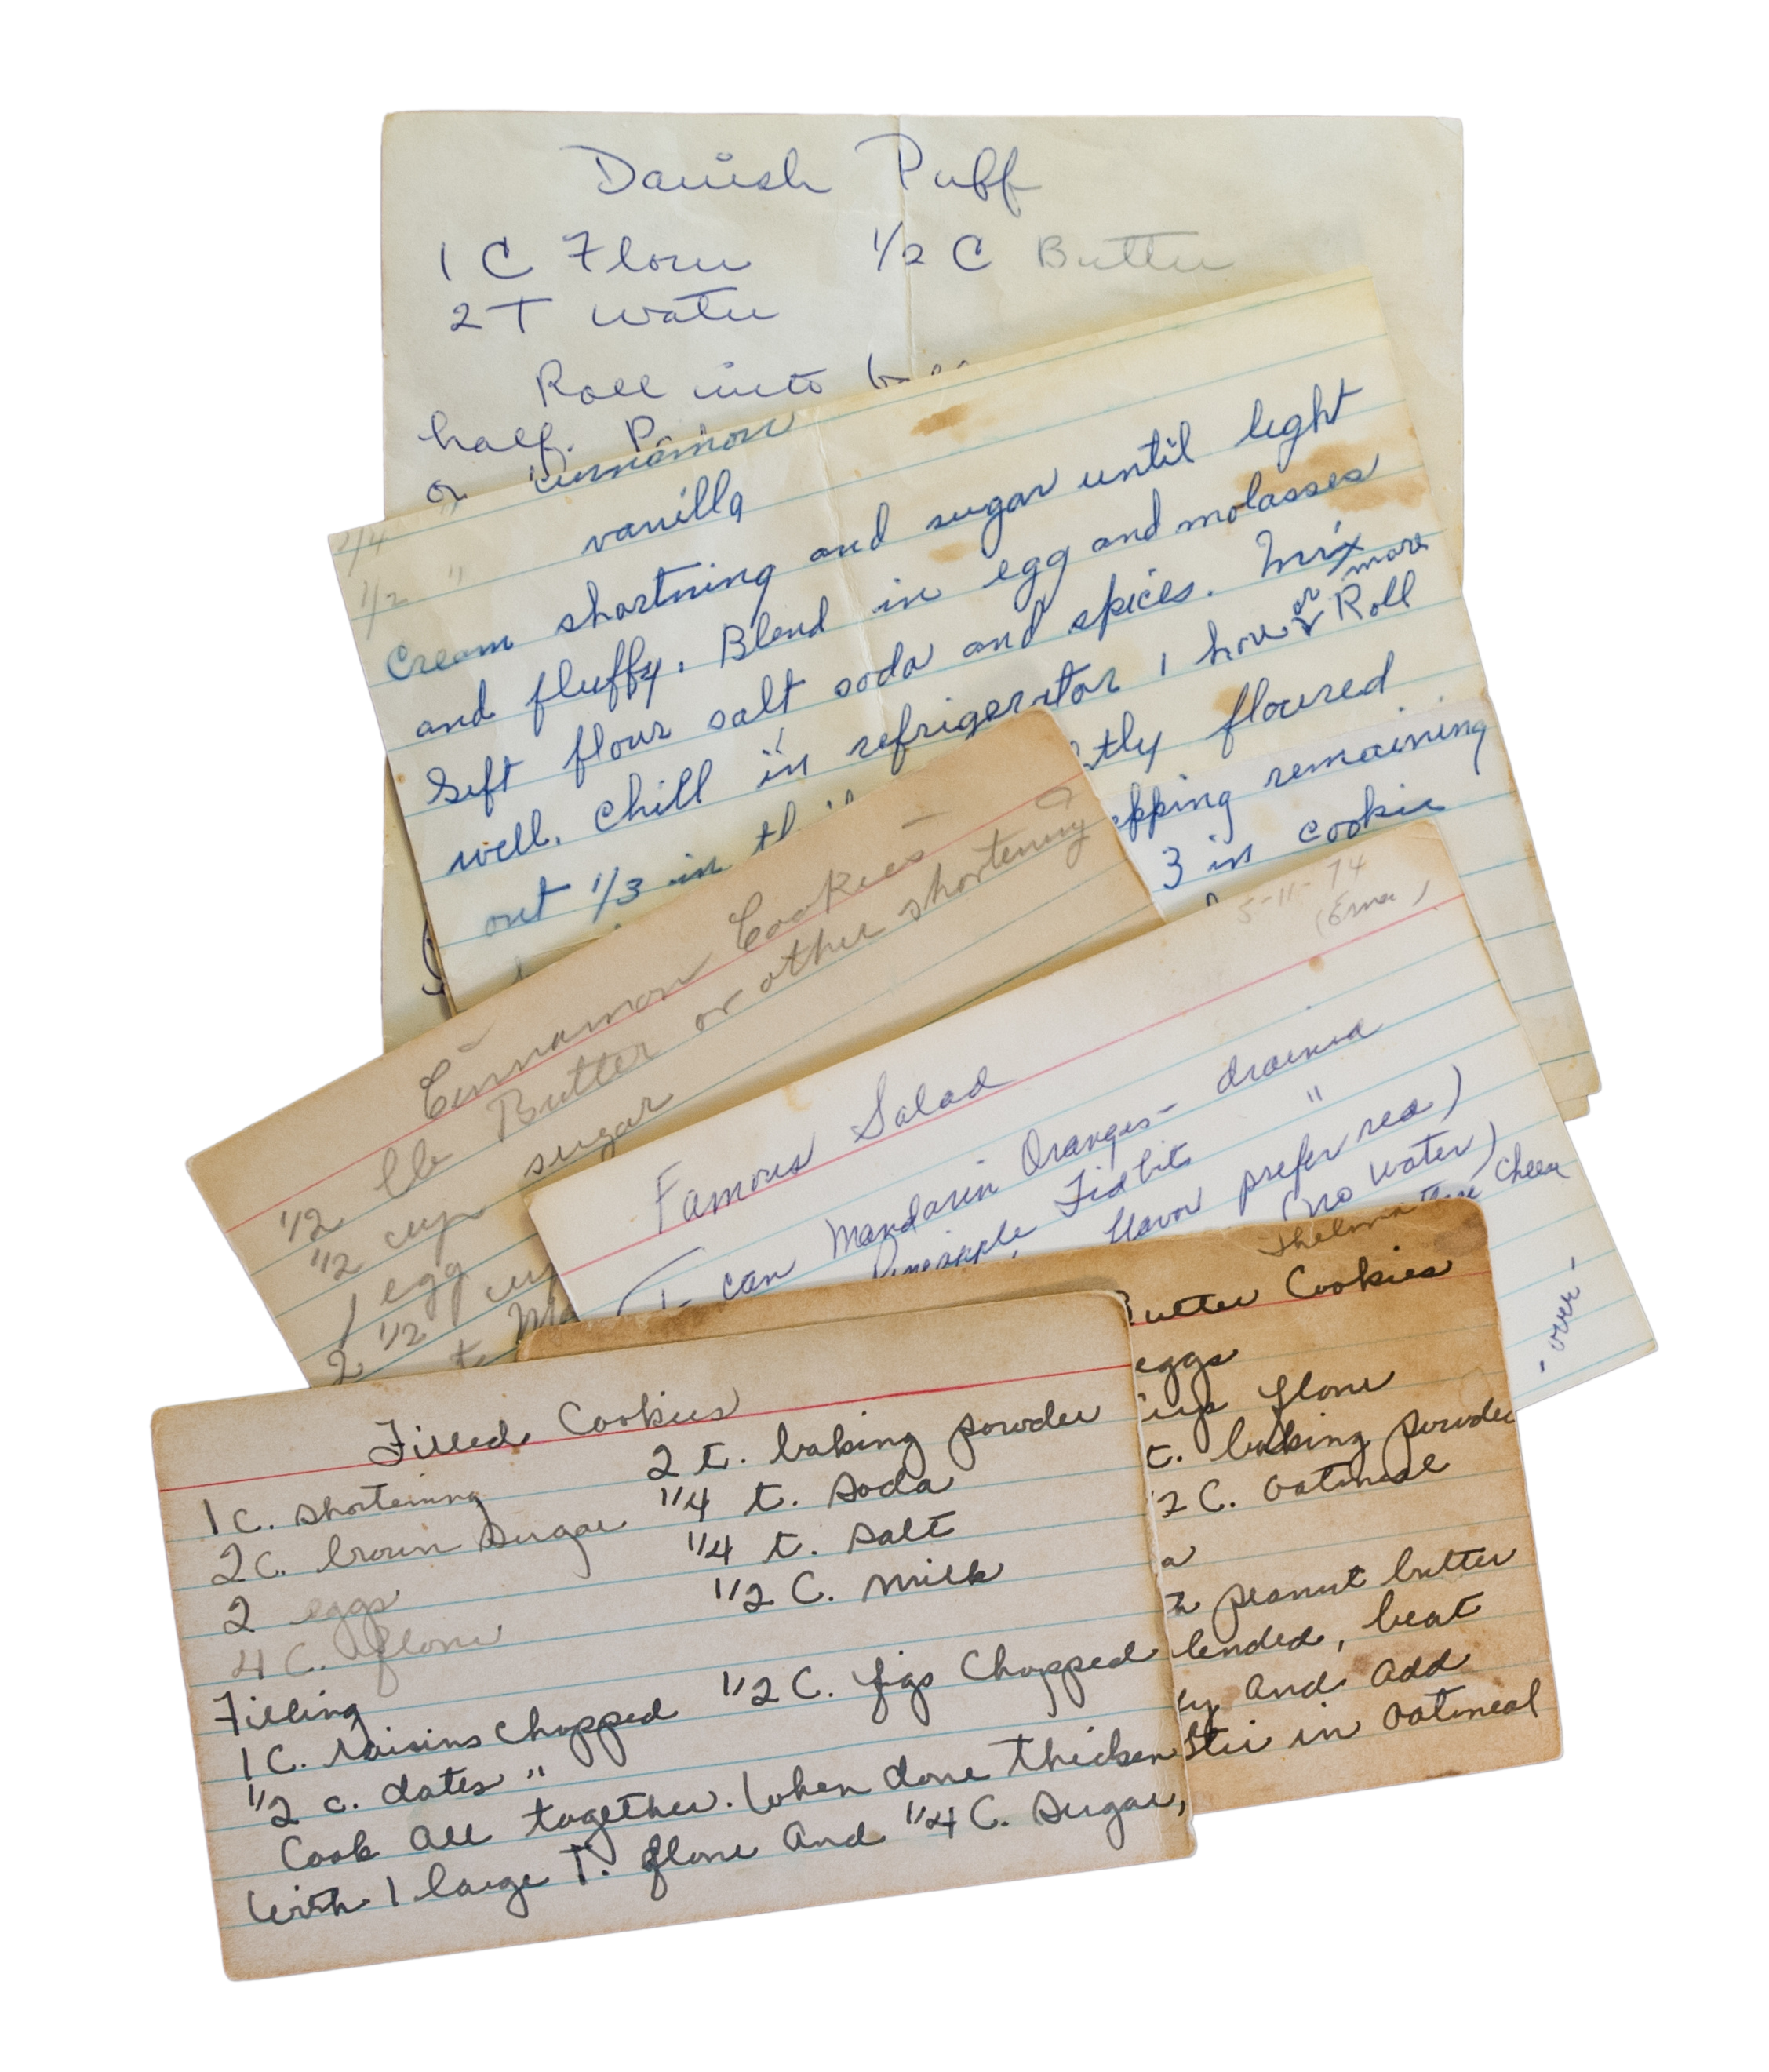 Danish Puff
1 C Flour 1/2 C Butter
2 T water
Roll into
half.
cinnamon
1/4 " vanilla
1/2 "
Cream shortning and sugar until light
and fluffy. Blend in egg and molasses
Sift flour salt soda and spices. Mix
well. Chill in refrigerator 1 hour or more Roll
out 1/3 in tly floured
pping remaining
3 in cookie
Cinnamon Cookies
1/2 lb Butter or other shortening
1/2 cup sugar
1 egg
2 1/2 cup
t
5-11-74
(Erna)
Famous Salad
1- can Mandarin Oranges - drained
Pineapple Tidbits "
flavor prefer red)
(no water)
Chees
- over -
Thelma
Butter Cookies
eggs
cup flour
t. baking powder
2 C. oatmeal
a
peanut butter
lended, beat
ly And Add
Stir in oatmeal
Filled Cookies
1 c. shortening 2 t. baking powder
2 c. brown sugar 1/4 t. soda
2 eggs 1/4 t. salt
4 C. flour 1/2 C. milk
Filling
1 C. raisins chopped 1/2 C. figs Chopped
1/2 c. dates "
Cook All together. When done thicken
With 1 large T. flour And 1/4 C. Sugar,